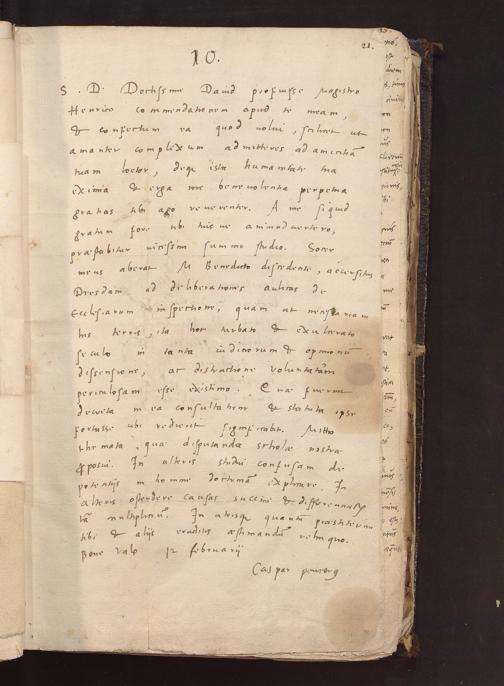 21.
10.
S. D. Doctissime David profuisse Magistro
Henrico commendationem apud te meam,
& confectum ea quod volui, scilicet ut
amanter complexum admitteres ad amicitiã
tuam laetor, deque ista humanitate tua
eximia & erga me benevolentia perpetua
gratias tibi ago reverenter. A me si quid
gratum fore tibi tuisve animadvertero,
præstabitur vicissim summo studio. Socer
meus aberat M Benedicto discedente, accersitus
Dresdam ad deliberationes aulicas de
Ecclesiarum inspectione, quam ut necessariam
his terris, ita hoc turbato & exulcerato
seculo in tanta iudiciorum & opinionũ
dissensione, ac distractione voluntatũm
periculosam esse existimo. Quæ fuerint
decreta in ea consultatione & statuta ipse
fortasse ubi redierit significabit. Mitto
themata, quæ disputanda scholæ nostræ
proposui. In alteris studui confusam de
potentijs in homine doctrinã explicare. In
alteris ostendere causas succini &
tã multiplicium. In utrisque quantũ præstiterim
tibi & alijs eruditis æstimandũ relinquo.
Bene vale 12 februarij
Caspar peucerus